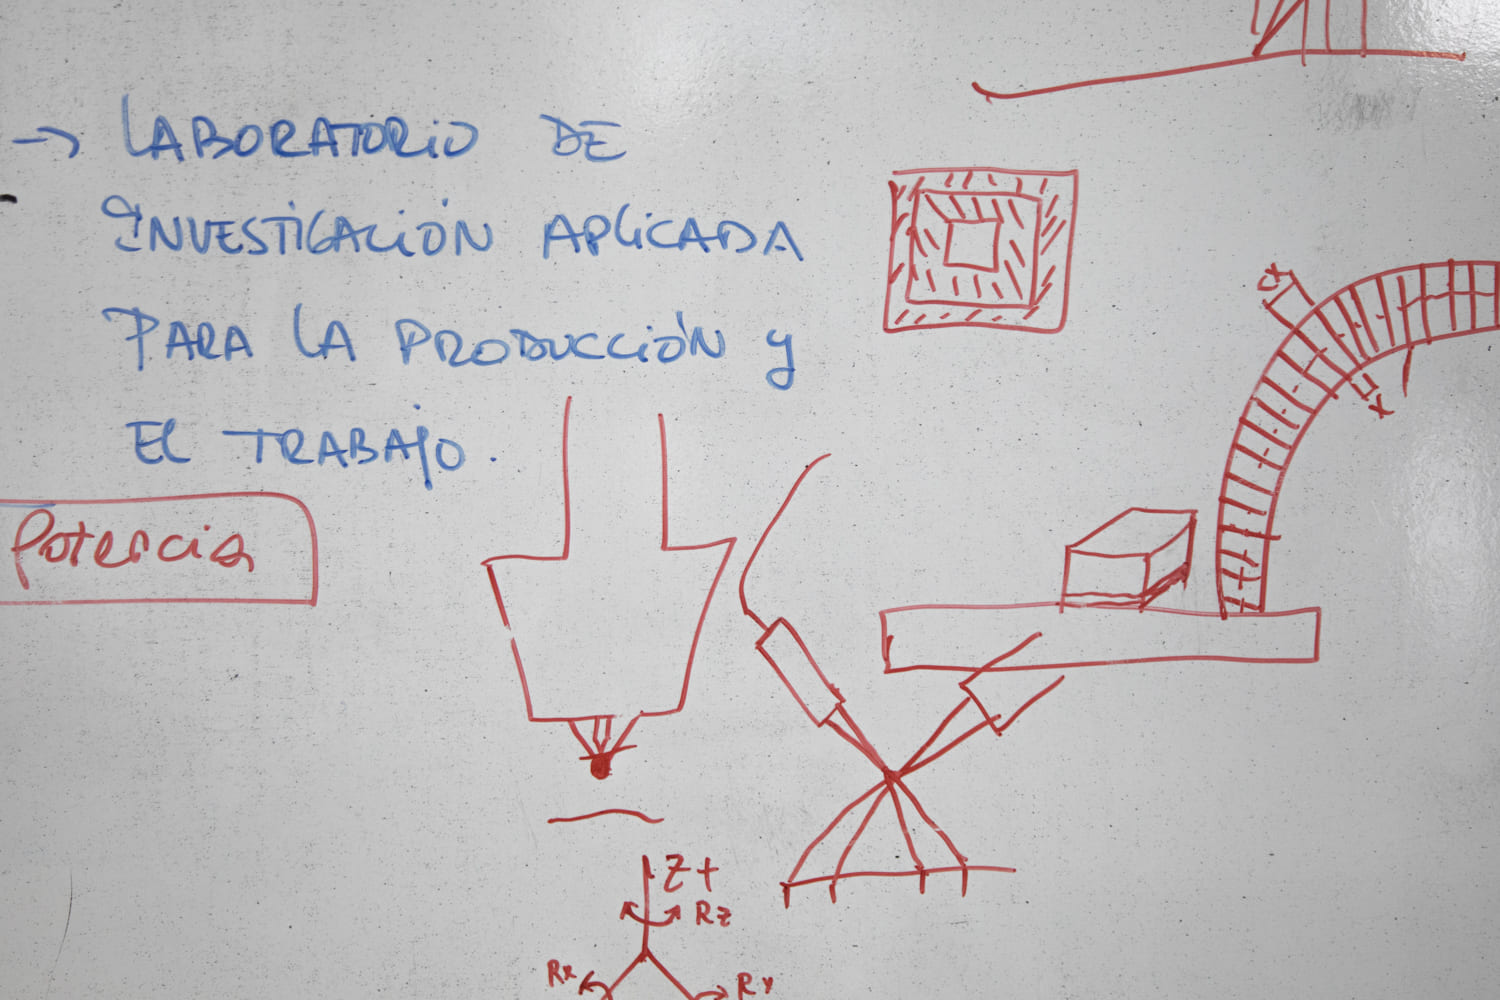 → LABORATORIO DE
INVESTIGACIÓN APLICADA
PARA LA PRODUCCIÓN y
EL TRABAJO.
Potencia
Z+
Rz
Rx
Ry
x